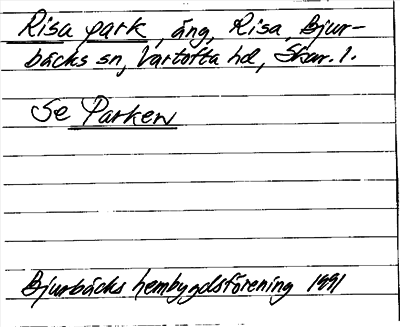 Risa park, äng, Risa, Bjur-
bäcks sn, Vartofta hd, Skar. l.
Se Parken
Bjurbäcks hembygdsförening 1991